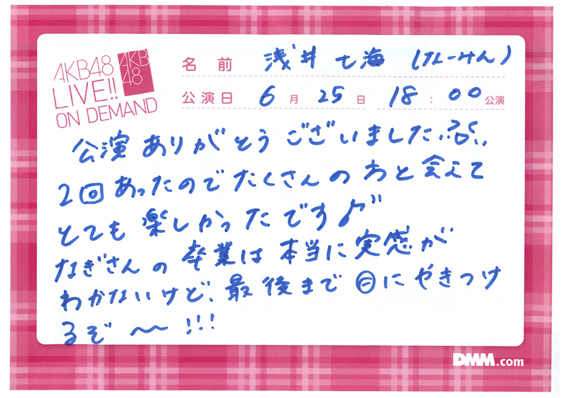 AKB48
LIVE!!
ON DEMAND
AKB
48
名前 浅井七海 (なーみん)
公演日 6月25日 18:00公演
公演ありがとうございました
2回あったのでたくさんの方と会えて
とても楽しかったです♪
なぎさんの卒業は本当に実感が
わかないけど、最後まで目にやきつけ
るぞ〜!!!
DMM.com